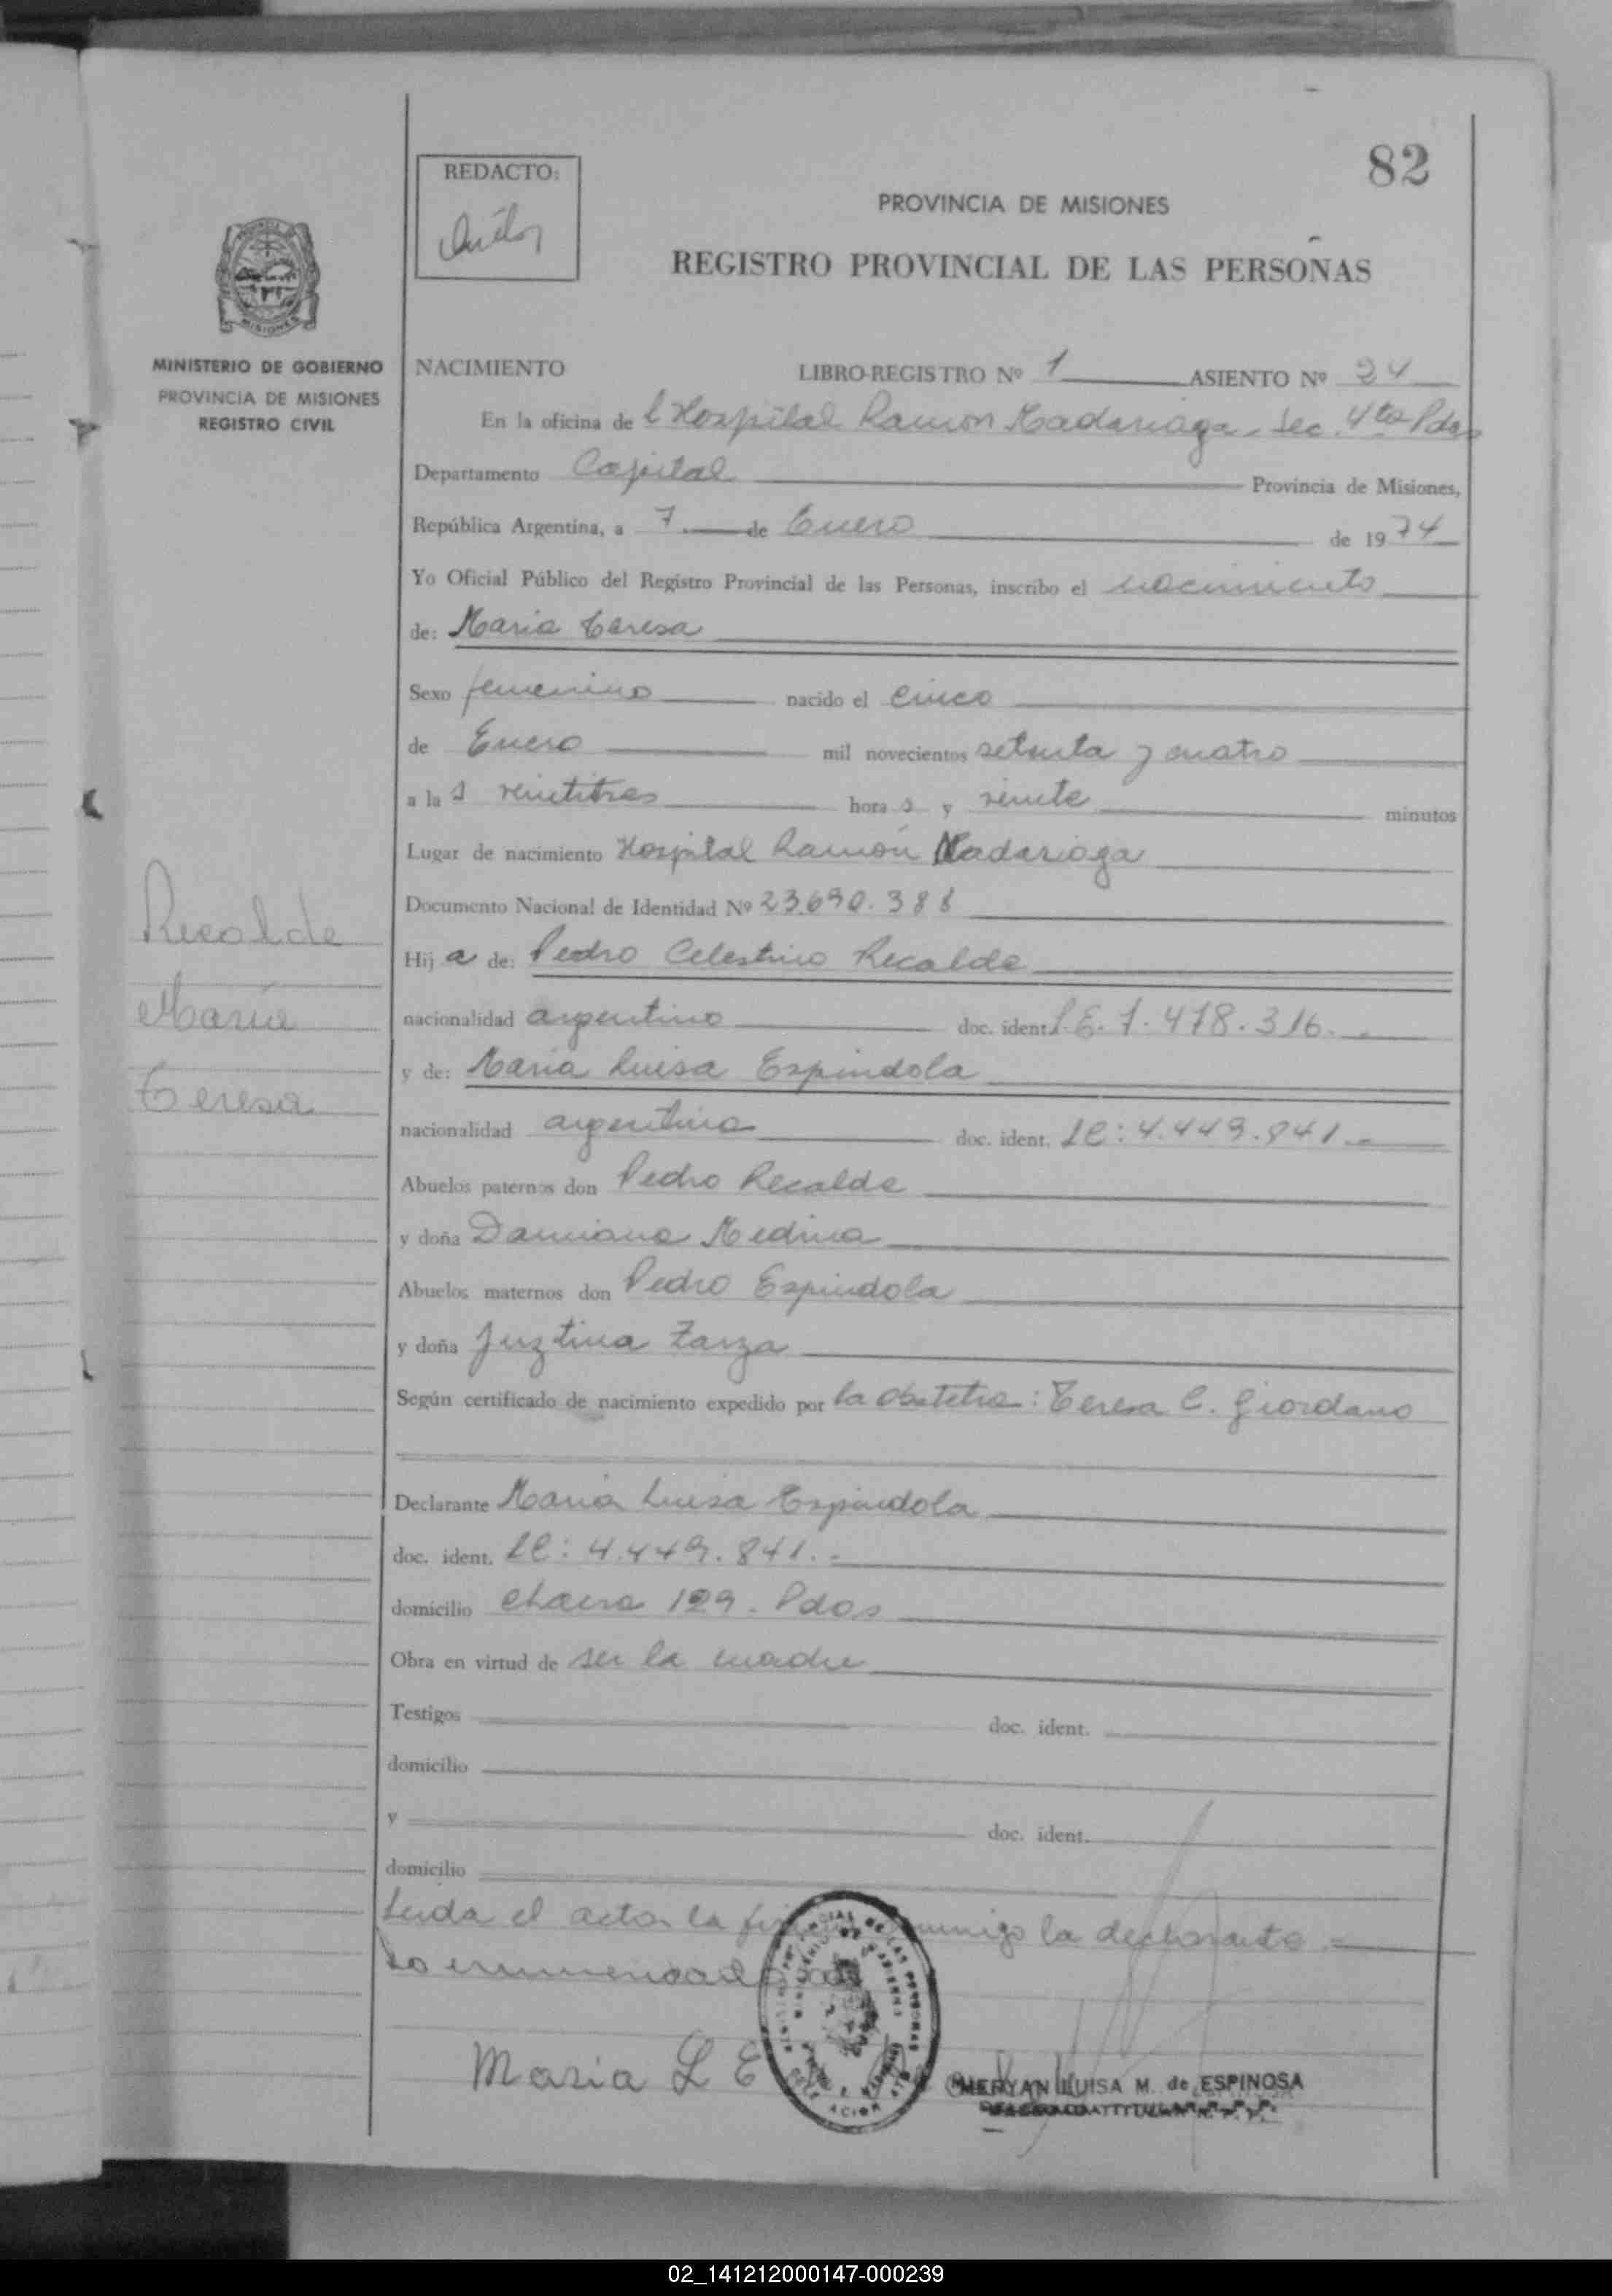 82
REDACTO:
PROVINCIA DE MISIONES
REGISTRO PROVINCIAL DE LAS PERSONAS
MISIONES
MINISTERIO DE GOBIERNO
PROVINCIA DE MISIONES
REGISTRO CIVIL
NACIMIENTO LIBRO-REGISTRO Nº 1 ASIENTO Nº 24
En la oficina de l Hospital Ramon Madariaga - Sec. 4ta Pdas
Departamento Capital Provincia de Misiones,
República Argentina, a 7 de Enero de 1974
Yo Oficial Público del Registro Provincial de las Personas, inscribo el nacimiento
de: Maria Teresa
Sexo femenino nacido el cinco
de Enero mil novecientos setenta y cuatro
a la s veintitres hora s y veinte minutos
Lugar de nacimiento Hospital Ramón Madariaga
Documento Nacional de Identidad Nº 23.690.388
Recalde
Hij a de: Pedro Celestino Recalde
María
nacionalidad argentino doc. ident. L.E. 7.478.316.-
y de: Maria Luisa Espindola
Teresa
nacionalidad argentina doc. ident. LC: 4.449.841.-
Abuelos paternos don Pedro Recalde
y doña Damiana Medina
Abuelos maternos don Pedro Espindola
y doña Juztina Zarza
Según certificado de nacimiento expedido por la obstetra: Teresa C. Giordano
Declarante Maria Luisa Espindola
doc. ident. LC: 4.449.841.-
domicilio Chacra 129. Pdas
Obra en virtud de ser la madre
Testigos doc. ident.
domicilio
y doc. ident.
domicilio
Leida el acta la conmigo la declarante.-
Lo enmendado
Maria L E
MERYAN LUISA M. de ESPINOSA
02_141212000147-000239